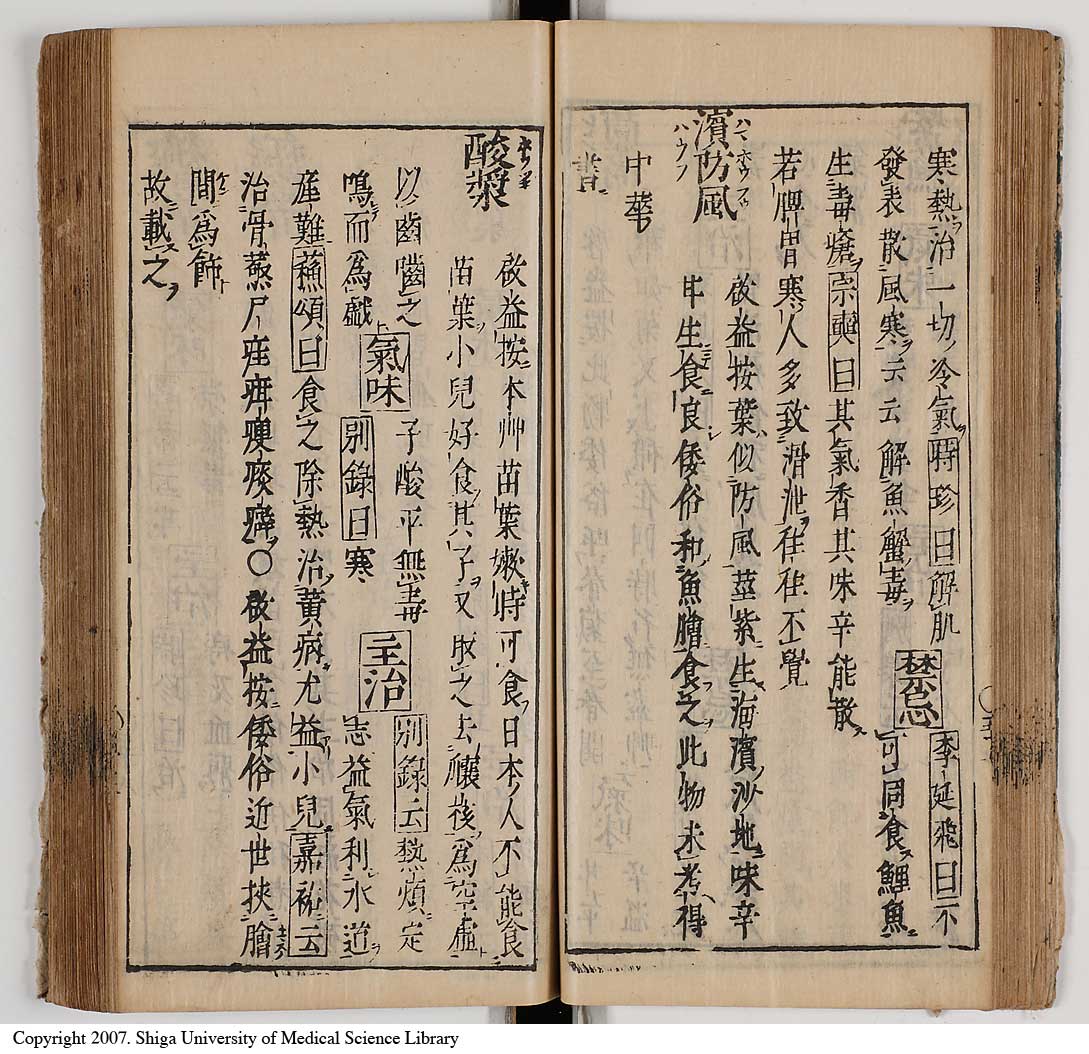 寒熱治一切冷氣時珍曰解肌
發表散風寒云云解魚蟹毒 禁忌 李延飛曰不
可同食鯉魚
生毒瘡宗奭曰其氣香其味辛能散
若脾胃寒人多致滑泄往往不覺
濱防風
ハマホウフウ
ハウフウ
啟益按葉似防風莖紫生海濱沙地味辛
甘生食良倭俗和魚膾食之此物未考得
中華
書
酸漿
啟益按本艸苗葉嫩時可食日本人不能食
苗葉小兒好食其子又取之去穰核為空虛
以齒嚙之
鳴而為戲 氣味 子酸平無毒別錄曰寒 主治 別錄云熱煩定
志益氣利水道
産難蘓頌曰食之除熱治黃病尤益小兒嘉祐云
治骨蒸尸疰疳瘦痰癖〇啟益按倭俗近世挾膾
間為飾
故載之
Copyright 2007. Shiga University of Medical Science Library